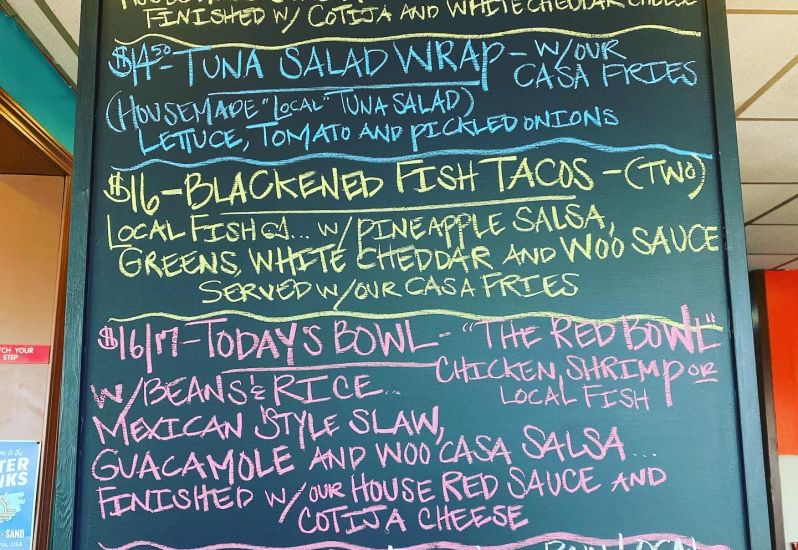 FINISHED W/ COTIJA AND WHITE CHEDDAR CHEESE
$14.50 - TUNA SALAD WRAP - W/OUR
CASA FRIES
(HOUSEMADE "LOCAL" TUNA SALAD)
LETTUCE, TOMATO AND PICKLED ONIONS
$16 - BLACKENED FISH TACOS - (TWO)
LOCAL FISH ... W/ PINEAPPLE SALSA,
GREENS, WHITE CHEDDAR AND WOO SAUCE
SERVED W/OUR CASA FRIES
$16/17 - TODAY'S BOWL - "THE RED BOWL"
CHICKEN, SHRIMP OR
LOCAL FISH
W/BEANS & RICE...
MEXICAN STYLE SLAW,
GUACAMOLE AND WOO CASA SALSA...
FINISHED W/ OUR HOUSE RED SAUCE AND
COTIJA CHEESE
LOCAL
TCH YOUR
STEP
to the
TER
NKS
SAND
USA